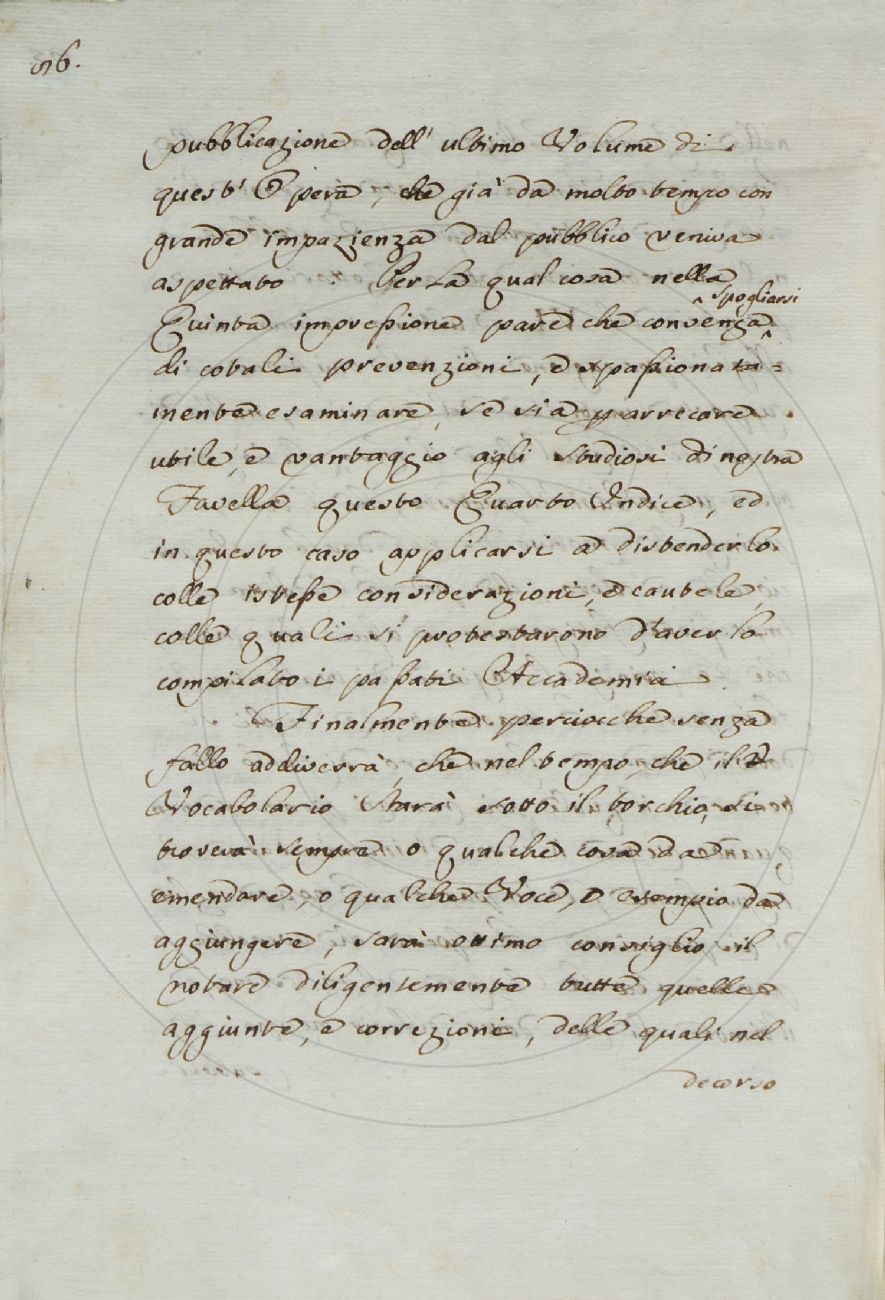 96.
pubblicazione dell' ultimo Volume di
quest' Opera, che già da molto tempo con
grande impazienza dal pubblico veniva
aspettato. Per la qual cosa nella
spogliarsi
Quinta impressione pare che convenga
di cotali prevenzioni, e spassionata=
mente esaminare, se sia p arrecare
utile, e vantaggio agli studiosi di nostra
Favella questo Quarto Indice, ed
in questo caso applicarsi a distenderlo
colle istesse considerazioni, e cautele,
colle quali si protestarono d'averlo
compilato i passati Accademici.
Finalmente perciocche senza
fallo addiverrà, che nel tempo, che il
Vocabolario starà sotto il torchio, si
troverà sempre o qualche cosa da
emendare, o qualche Voce, o esempio da
aggiungere, sarà ottimo consiglio il
notare diligentemente tutte quelle
aggiunte, e correzioni, delle quali nel
decorso